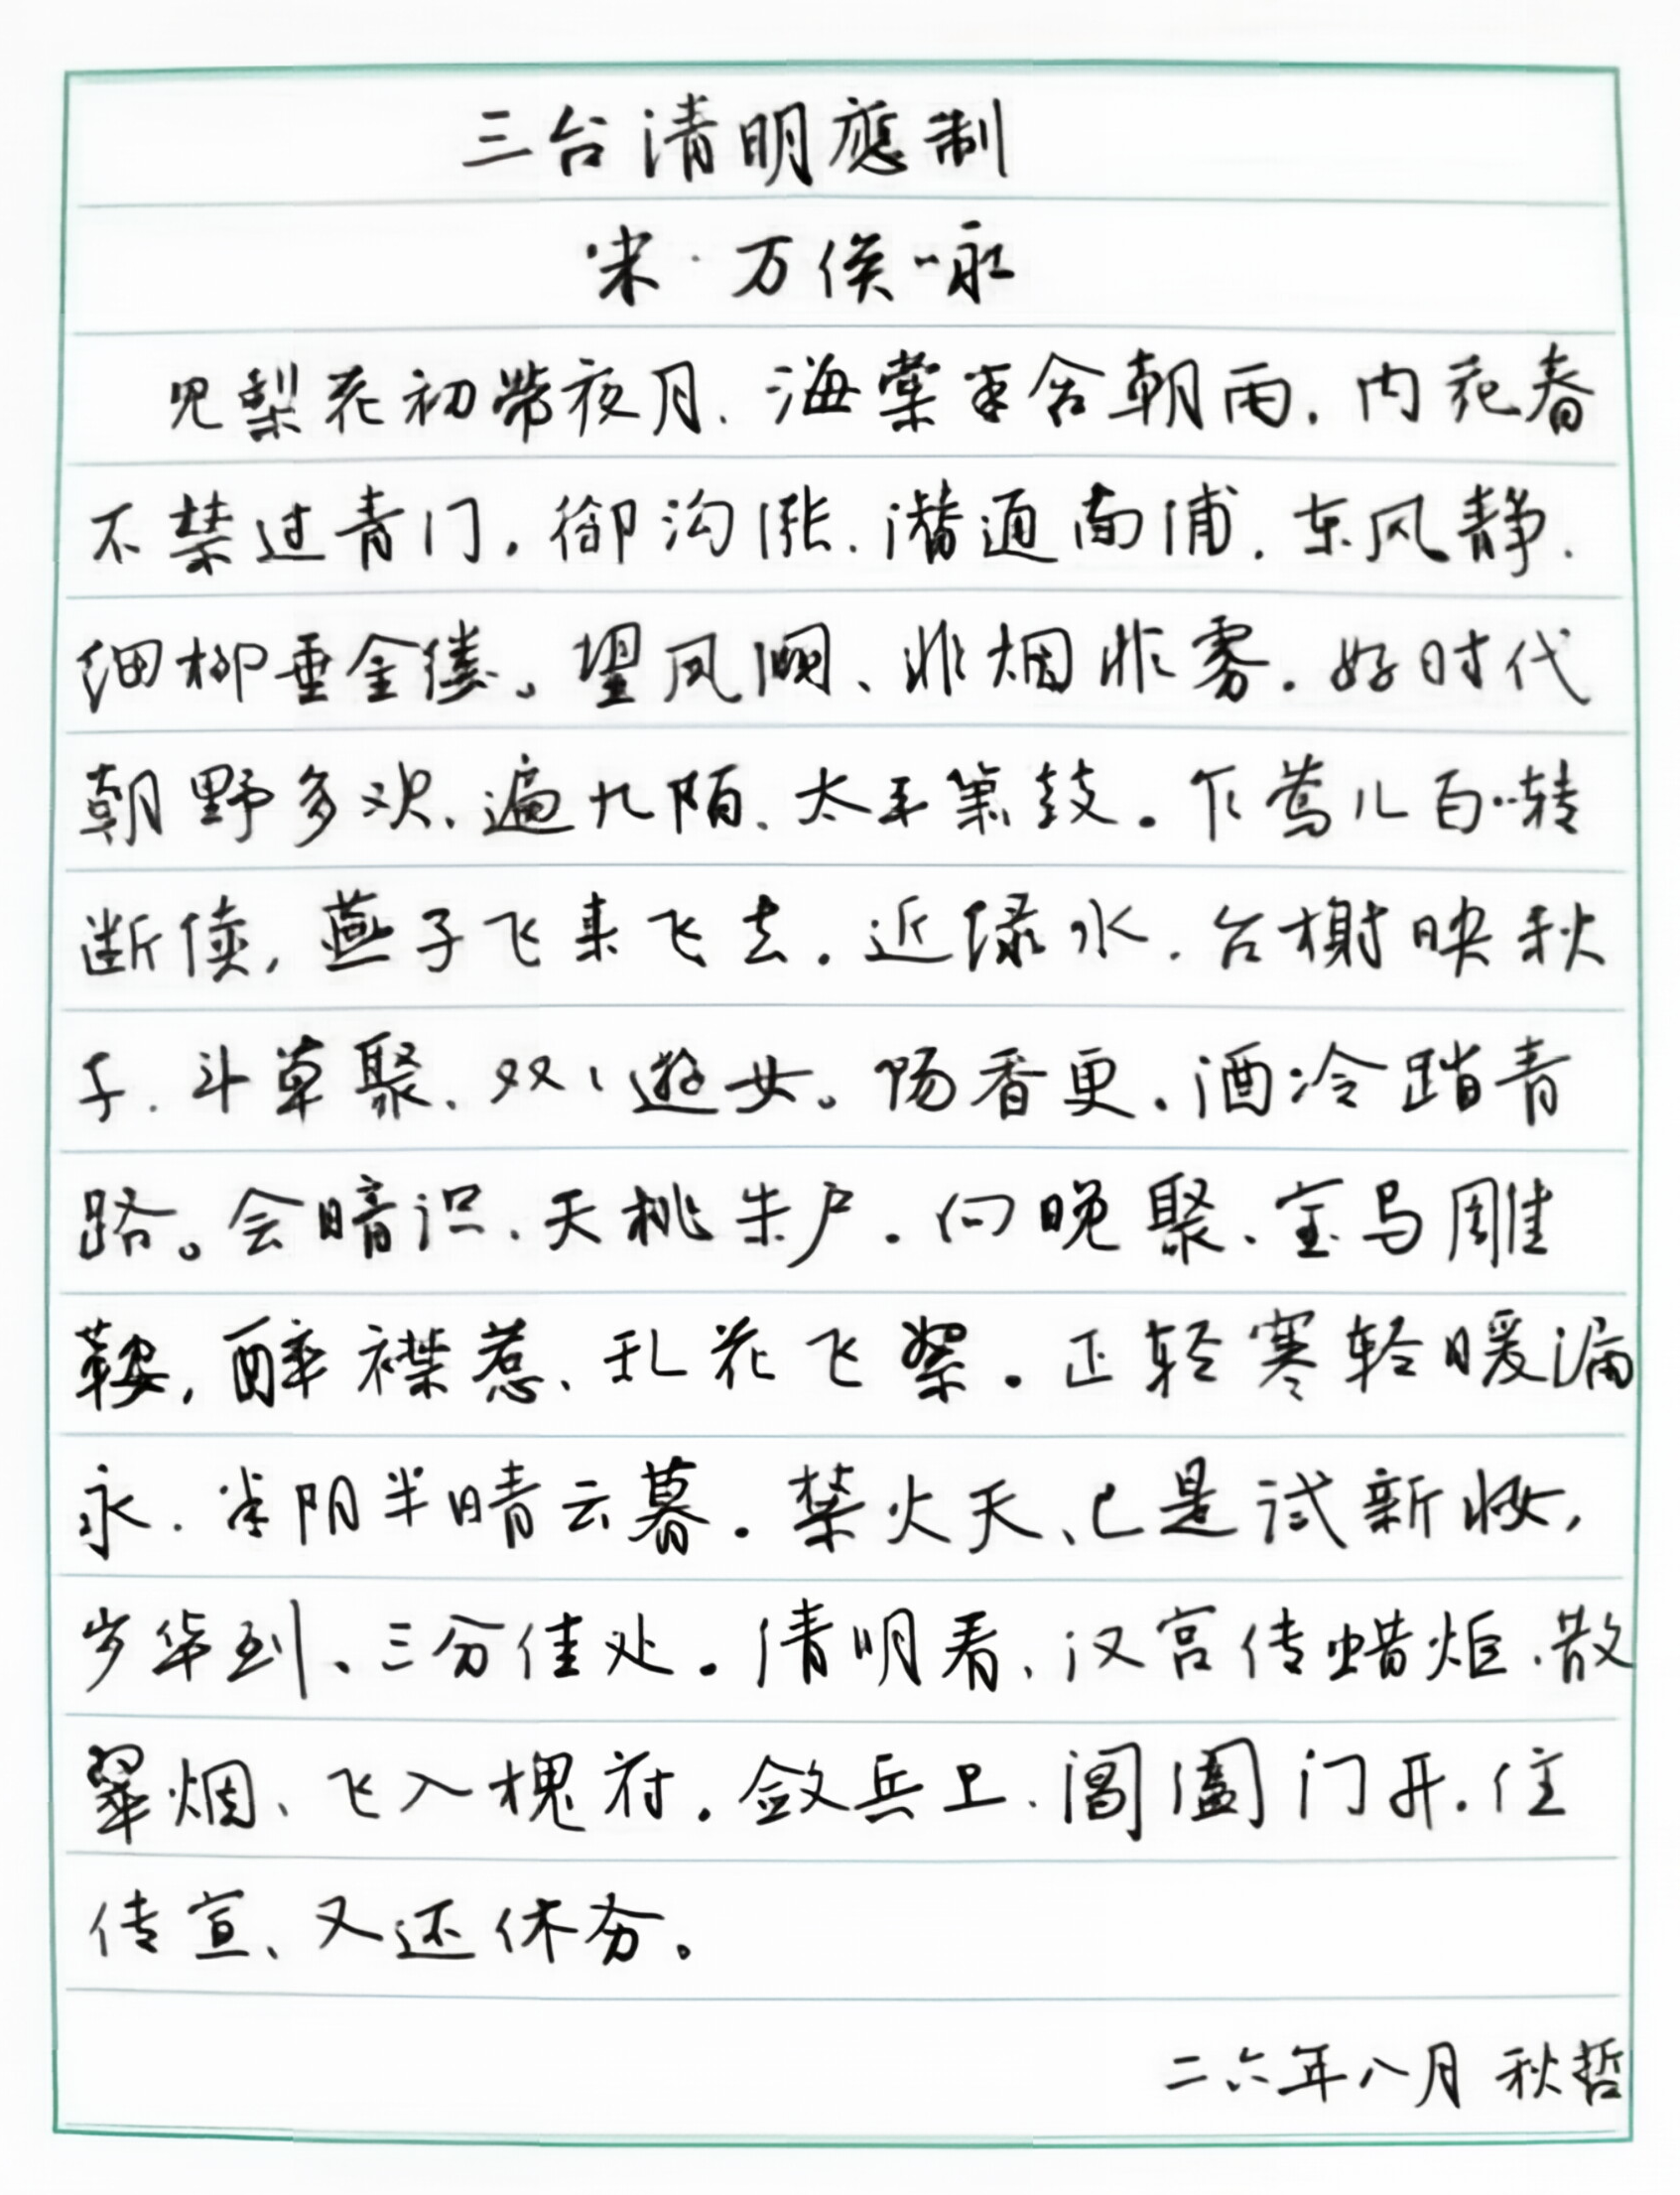 三台清明應制
宋·万俟咏
见梨花初带夜月、海棠半含朝雨，内苑春
不禁过青门，御沟涨、潜通南浦。东风静、
细柳垂金缕。望凤阙、非烟非雾。好时代
朝野多欢、遍九陌、太平箫鼓。乍莺儿百啭
断续，燕子飞来飞去。近绿水、台榭映秋
千、斗草聚、双、遊女。饧香更、酒冷踏青
路。会暗识、夭桃朱户。向晚聚、宝马雕
鞍，醉襟惹、乱花飞絮。正轻寒轻暖漏
永、半阴半晴云暮。禁火天、已是试新妆，
岁华到、三分佳处。清明看、汉宫传蜡炬、散
翠烟、飞入槐府。敛兵卫、阊阖门开。住
传宣、又还休务。
二六年八月 秋哲